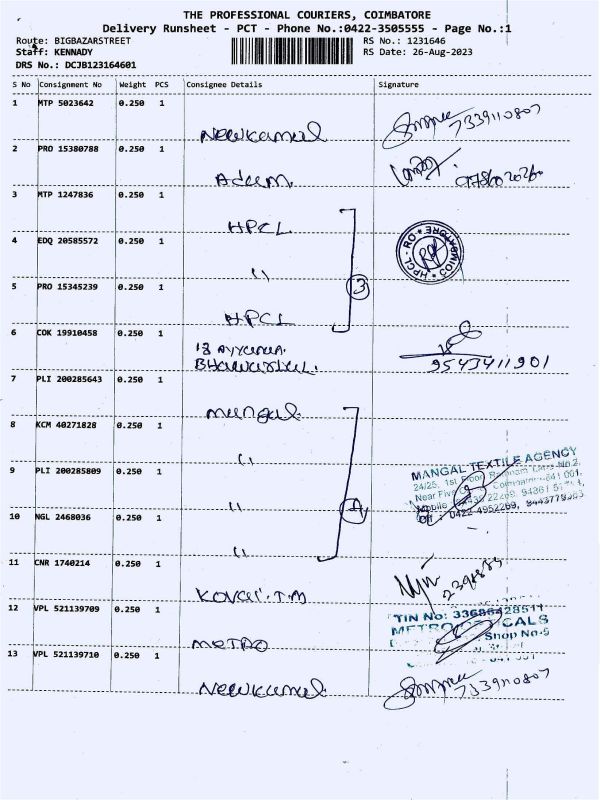 THE PROFESSIONAL COURIERS, COIMBATORE
Delivery Runsheet - PCT - Phone No.:0422-3505555 - Page No.:1
Route: BIGBAZARSTREET RS No.: 1231646
Staff: KENNADY RS Date: 26-Aug-2023
DRS No.: DCJB123164601
S No Consignment No Weight PCS Consignee Details Signature
1 MTP 5023642 0.250 1
Newkamal 7339110807
2 PRO 15380788 0.250 1
3 MTP 1247836 0.250 1
HPCL
4 EDQ 20585572 0.250 1
HPCL-RO COIMBATORE
" 3
5 PRO 15345239 0.250 1
HPCL
6 COK 19910458 0.250 1
9543411901
7 PLI 200285643 0.250 1
Mangal
8 KCM 40271828 0.250 1
"
MANGAL TEXTILE AGENCY
9 PLI 200285809 0.250 1
24/25, 1st Floor
Near Five
" 4
10 NGL 2468036 0.250 1
Off : 0422-4952269,
"
11 CNR 1740214 0.250 1
Kovai. T.M
12 VPL 521139709 0.250 1
TIN No: 33686428511
METRO
Shop No-5
13 VPL 521139710 0.250 1
Newkamal 7339110807